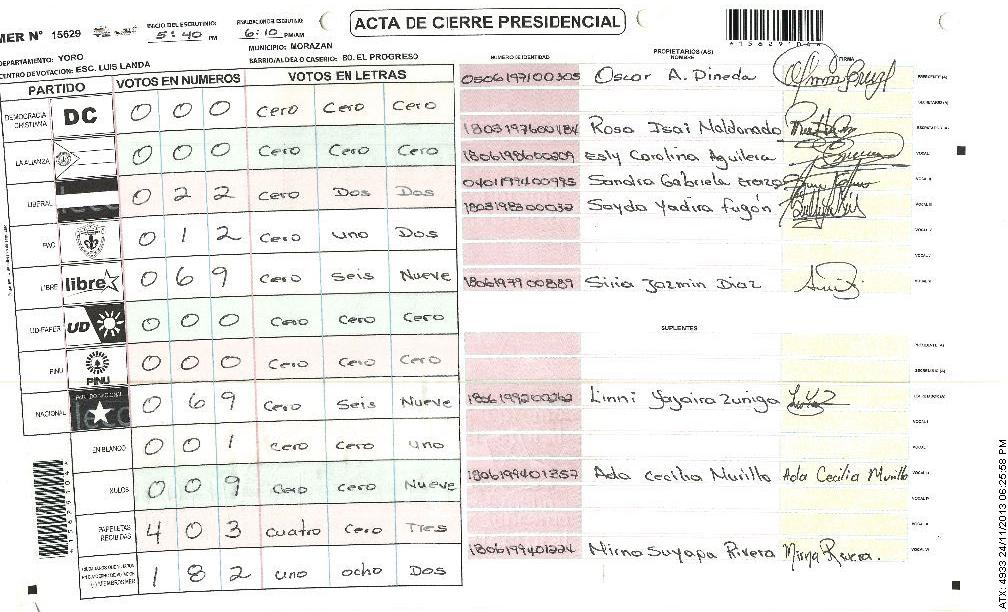 ACTA DE CIERRE PRESIDENCIAL
MER N° 15629
INICIO DEL ESCRUTINIO: 5:40 PM
FINALIZACION DEL ESCRUTINIO: 6:10 PM/AM
DEPARTAMENTO: YORO
MUNICIPIO: MORAZAN
CENTRO DE VOTACION: ESC. LUIS LANDA
BARRIO/ALDEA O CASERIO: BO. EL PROGRESO
PARTIDO VOTOS EN NUMEROS VOTOS EN LETRAS
DEMOCRACIA CRISTIANA DC 0 0 0 Cero Cero Cero
LA ALIANZA 0 0 0 Cero Cero Cero
LIBERAL 0 2 2 Cero Dos Dos
PAC 0 1 2 Cero uno Dos
LIBRE libre 0 6 9 Cero Seis Nueve
UD-FAPER UD 0 0 0 Cero Cero Cero
PINU PINU 0 0 0 Cero Cero Cero
NACIONAL 0 6 9 Cero Seis Nueve
EN BLANCO 0 0 1 Cero Cero uno
NULOS 0 0 9 Cero Cero Nueve
PAPELETAS RECIBIDAS 4 0 3 Cuatro Cero Tres
1 8 2 uno ocho Dos
PROPIETARIOS(AS)
NUMERO DE IDENTIDAD NOMBRE FIRMA
0506197100305 Oscar A. Pineda PRESIDENTE (A)
SECRETARIO (A)
1803197600484 Rosa Isai Maldonado
1806198600309 Esly Carolina Aguilera VOCAL I
0401199400995 Sandra Gabriela
1803198300032 Sayda Yadira Fugón
1806197900889 Siria Jazmin Diaz
SUPLENTES
PRESIDENTE (A)
SECRETARIO (A)
1806199200262 Linni Yajaira Zuniga
1806199401357 Ada Cecilia Murillo Ada Cecilia Murillo
1806199401224 Mirna Suyapa Rivera Mirna Rivera.
ATX: 4933 24/11/2013 06:25:58 PM